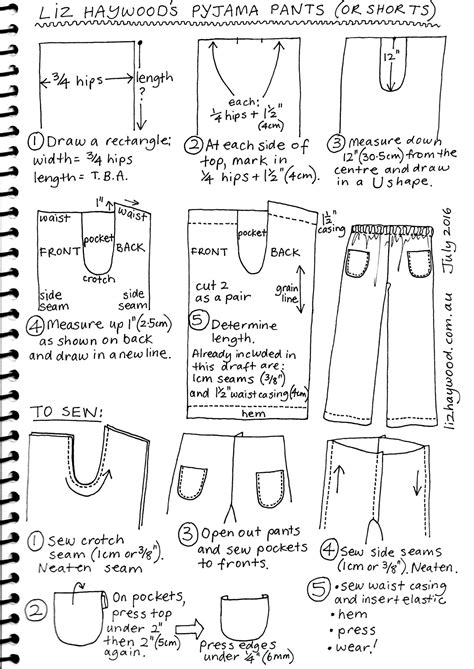 LIZ HAYWOOD'S PYJAMA PANTS (OR SHORTS)
3/4 hips
length
?
① Draw a rectangle:
width = 3/4 hips
length = T.B.A.
each:
1/4 hips + 1 1/2"
(4cm)
② At each side of
top, mark in
1/4 hips + 1 1/2" (4cm).
12"
③ Measure down
12" (30.5cm) from the
centre and draw
in a U shape.
waist
1"
waist
pocket
FRONT
BACK
crotch
side
seam
side
seam
④ Measure up 1" (2.5cm)
as shown on back
and draw in a new line.
1 1/2"
casing
pocket
FRONT
BACK
cut 2
as a pair
grain
line
⑤ Determine
length.
Already included in
this draft are:
1cm seams (3/8")
and 1 1/2" waist casing (4cm)
hem
lizhaywood.com.au July 2016
TO SEW:
① Sew crotch
seam (1cm or 3/8").
Neaten seam
② On pockets,
press top
under 2"
then 2" (5cm)
again.
Press edges
under 1/4" (6mm)
③ Open out pants
and sew pockets
to fronts.
④ Sew side seams
(1cm or 3/8"). Neaten.
⑤ • sew waist casing
and insert elastic
• hem
• press
• wear!